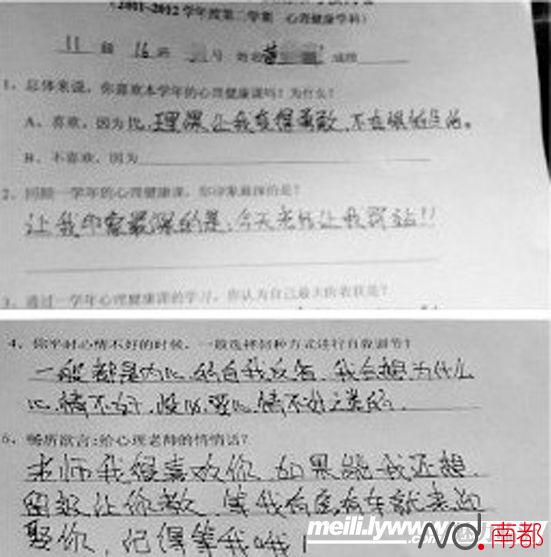 (2011-2012学年度第二学期 心理健康学科)
11 级 16 班 号 姓名 成绩
1、总体来说，你喜欢本学年的心理健康课吗？为什么？
A、喜欢，因为 心理课让我变得勇敢，不在
B、不喜欢，因为
2、回顾一学年的心理健康课，你印象最深的是？
让我印象最深的是，今天老师让我罚站!!
3、通过一学年心理健康课的学习，你认为自己最大的收获是？
4、你平时心情不好的时候，一般选择何种方式进行自我调节？
一般都是内心的自我反省，我会想为什么
心情不好，心情不好之类的。
5、畅所欲言:给心理老师的悄悄话?
老师我很喜欢你 如果能我还想
让你教 等我有房有车就来迎
娶你，记得等我哦！
meili.lyww
nd.南都